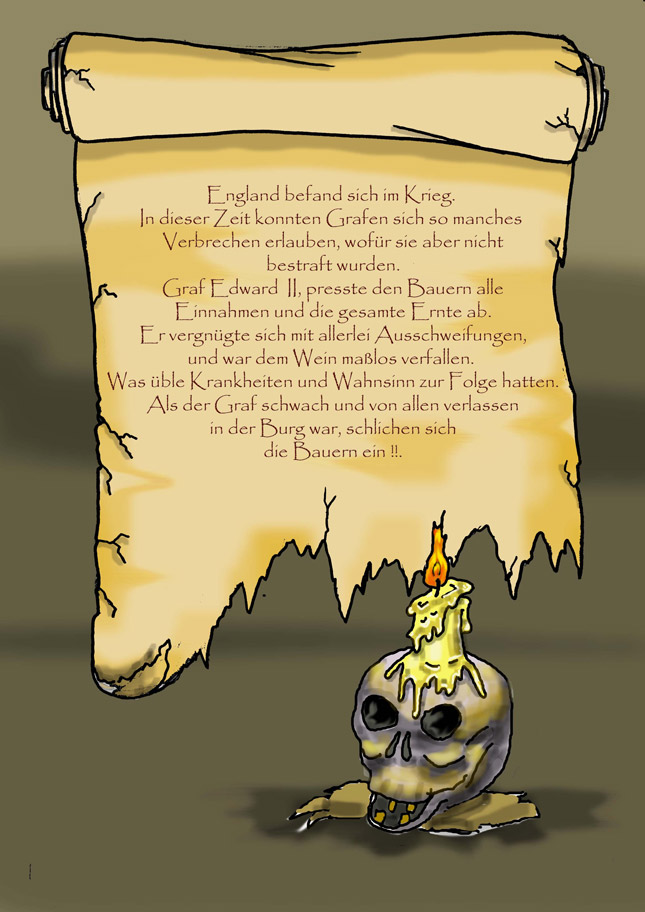 England befand sich im Krieg.
In dieser Zeit konnten Grafen sich so manches
Verbrechen erlauben, wofür sie aber nicht
bestraft wurden.
Graf Edward II, presste den Bauern alle
Einnahmen und die gesamte Ernte ab.
Er vergnügte sich mit allerlei Ausschweifungen,
und war dem Wein maßlos verfallen.
Was üble Krankheiten und Wahnsinn zur Folge hatten.
Als der Graf schwach und von allen verlassen
in der Burg war, schlichen sich
die Bauern ein !!.